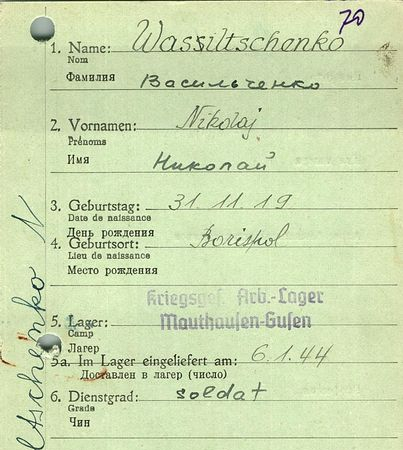 70
1. Name: Wassiltschenko
Nom
Фамилия Васильченко
2. Vornamen: Nikolaj
Prénoms
Имя Николай
3. Geburtstag: 31.11.19
Date de naissance
День рождения
4. Geburtsort: Borispol
Lieu de naissance
Место рождения
Kriegsgef. Arb.-Lager
5. Lager: Mauthausen-Gusen
Camp
Лагер
5a. Im Lager eingeliefert am: 6.1.44
Доставлен в лагер (число)
6. Dienstgrad: soldat
Grade
Чин
ltschenko N